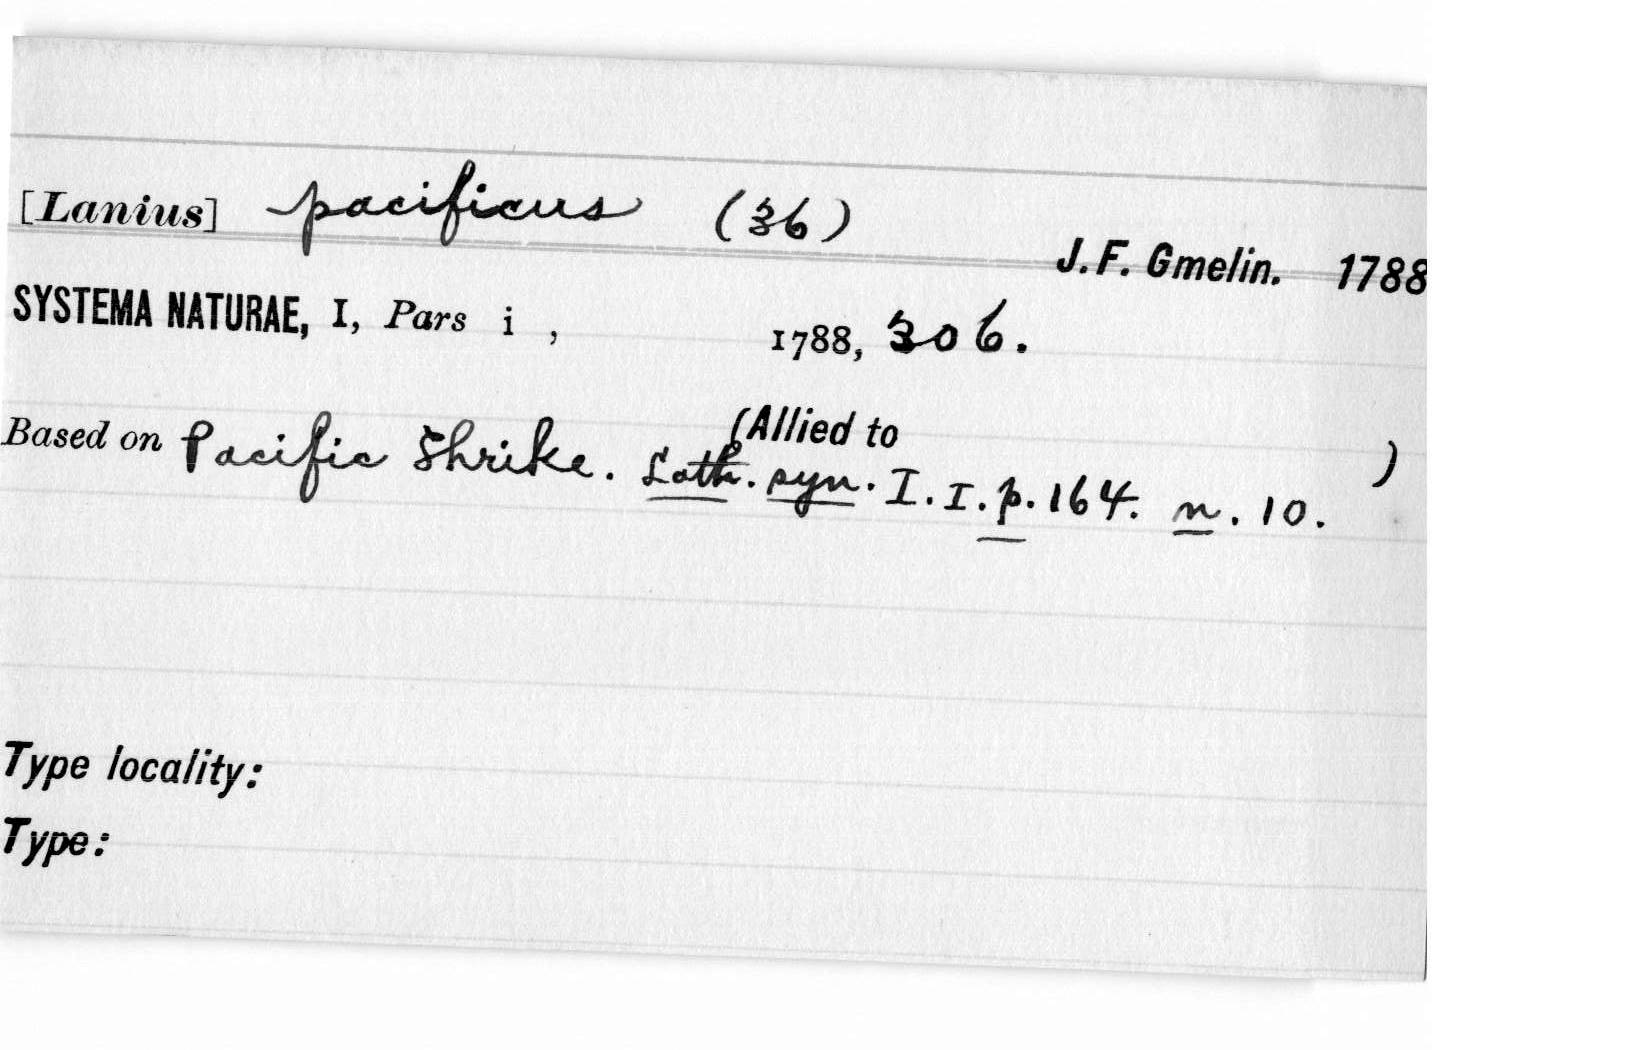 [Lanius] pacificus (36)
J. F. Gmelin. 1788
SYSTEMA NATURAE, I, Pars i , 1788, 306.
(Allied to )
Based on Pacific Shrike. Lath. syn. I. I. p. 164. n. 10.
Type locality:
Type: